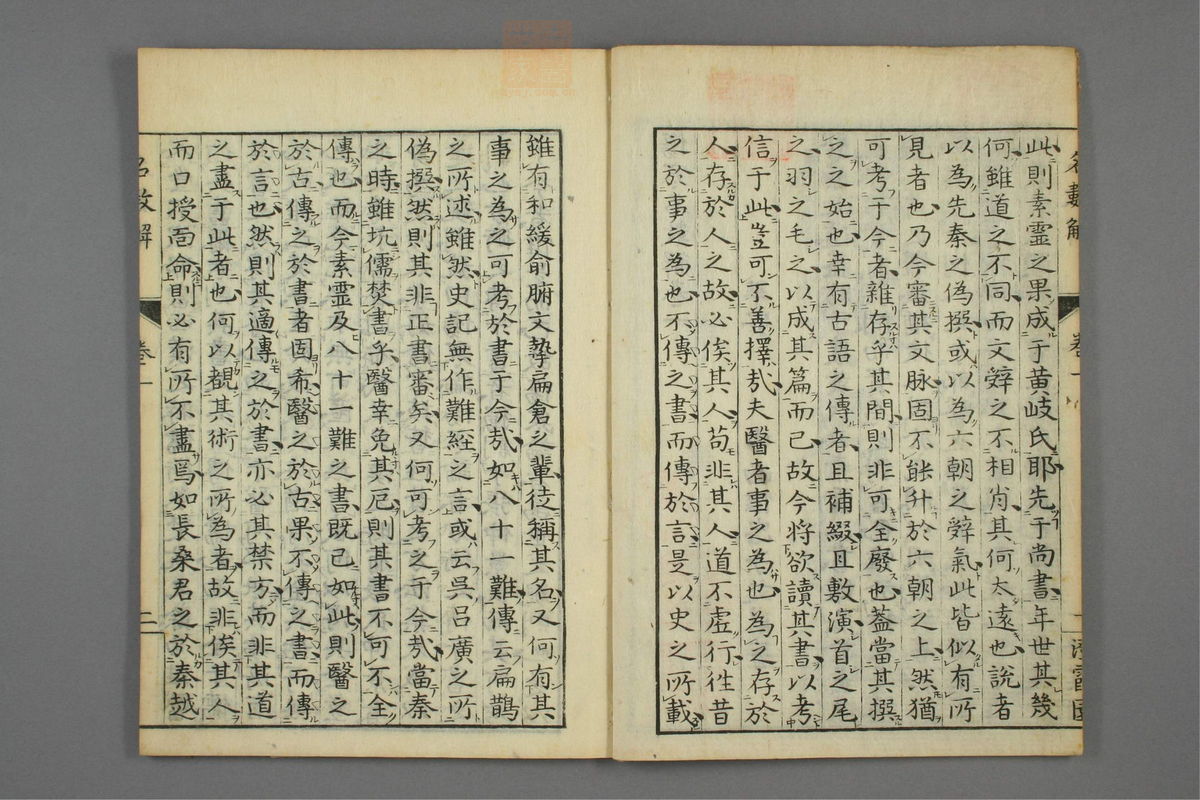 此則素靈之果成于黃岐氏耶先于尚書年世其幾
何雖道之不同而文辭之不相肖其何太遠也說者
以為先秦之偽撰或以為六朝之辭氣此皆似有所
見者也乃今審其文脉固不能升於六朝之上然猶
可考于今者雜存乎其間則非可全廢也蓋當其撰
之之始也幸有古語之傳者且補綴且敷演首之尾
之羽之毛之以成其篇而已故今將欲讀其書以考
信于此豈可不善擇哉夫醫者事之為也為之存於
人存於人之故必俟其人苟非其人道不虛行往昔
之於事之為也不傳之書而傳於言是以史之所載
雖有和緩俞腑文摯扁倉之輩徒稱其名又何有其
事之為之可考於書于今哉如八十一難傳云扁鵲
之所述雖然史記無作難經之言或云吳呂廣之所
偽撰然則其非正書審矣又何可考之于今哉當秦
之時雖坑儒焚書乎醫幸免其厄則其書不可不全
傳也而今素靈及八十一難之書既已如此則醫之
於古傳之於書者固希醫之於古果不傳之書而傳
於言也然則其適傳之於書亦必其禁方而非其道
之盡于此者也何以覩其術之所為者故非俟其人
而口授面命則必有所不盡焉如長桑君之於秦越
名數解
卷一
二